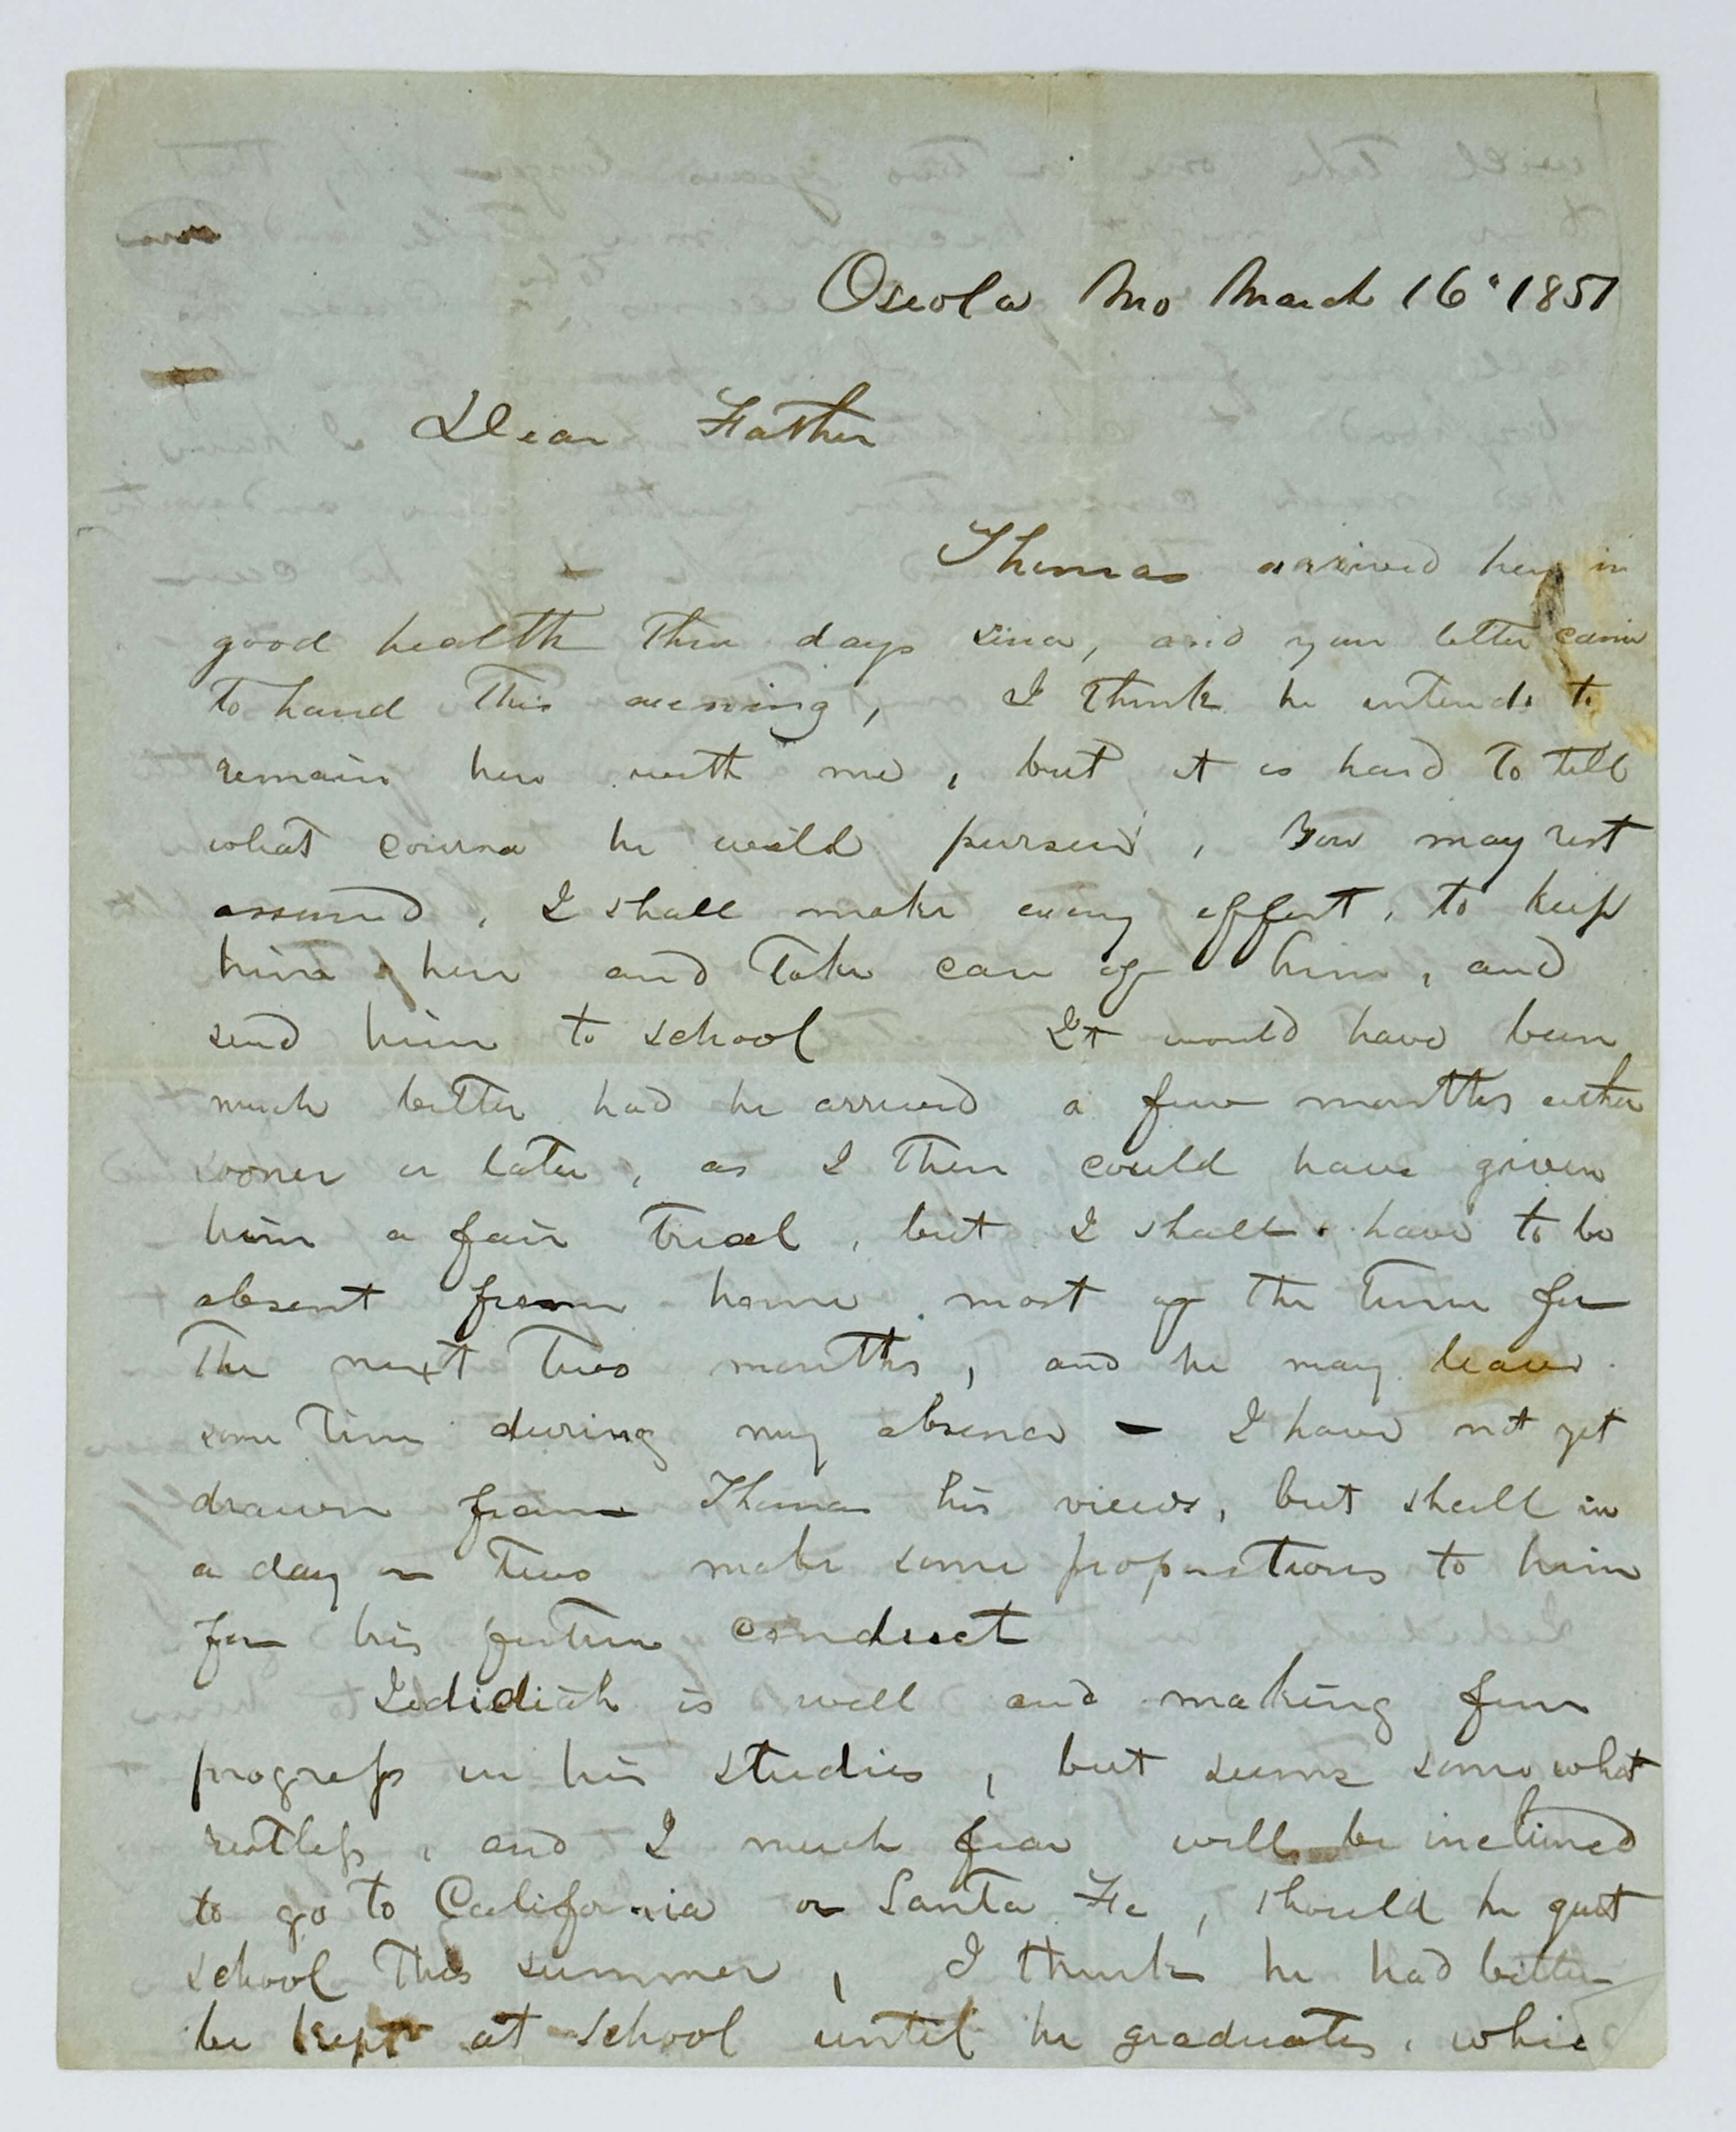 Oseola Mo March 16" 1851
Dear Father
Thomas arrived here in
good health three days since, and your letter came
to hand this evening, I think he intends to
remain here with me, but it is hard to tell
what course he will pursue, You may rest
assured, I shall make every effort, to keep
him here and take care of him, and
send him to school It would have been
much better had he arrived a few months either
sooner or later, as I then could have given
him a fair trial, but I shall have to be
absent from home most of the time for
the next two months, and he may leave
some time during my absence - I have not yet
drawn from Thomas his views, but shall in
a day or two make some propositions to him
for his future conduct
Jedidiah is well and making fine
progress in his studies, but seems somewhat
restless, and I much fear will be inclined
to go to California or Santa Fe, should he quit
school this summer, I think he had better
be kept at school until he graduates, which